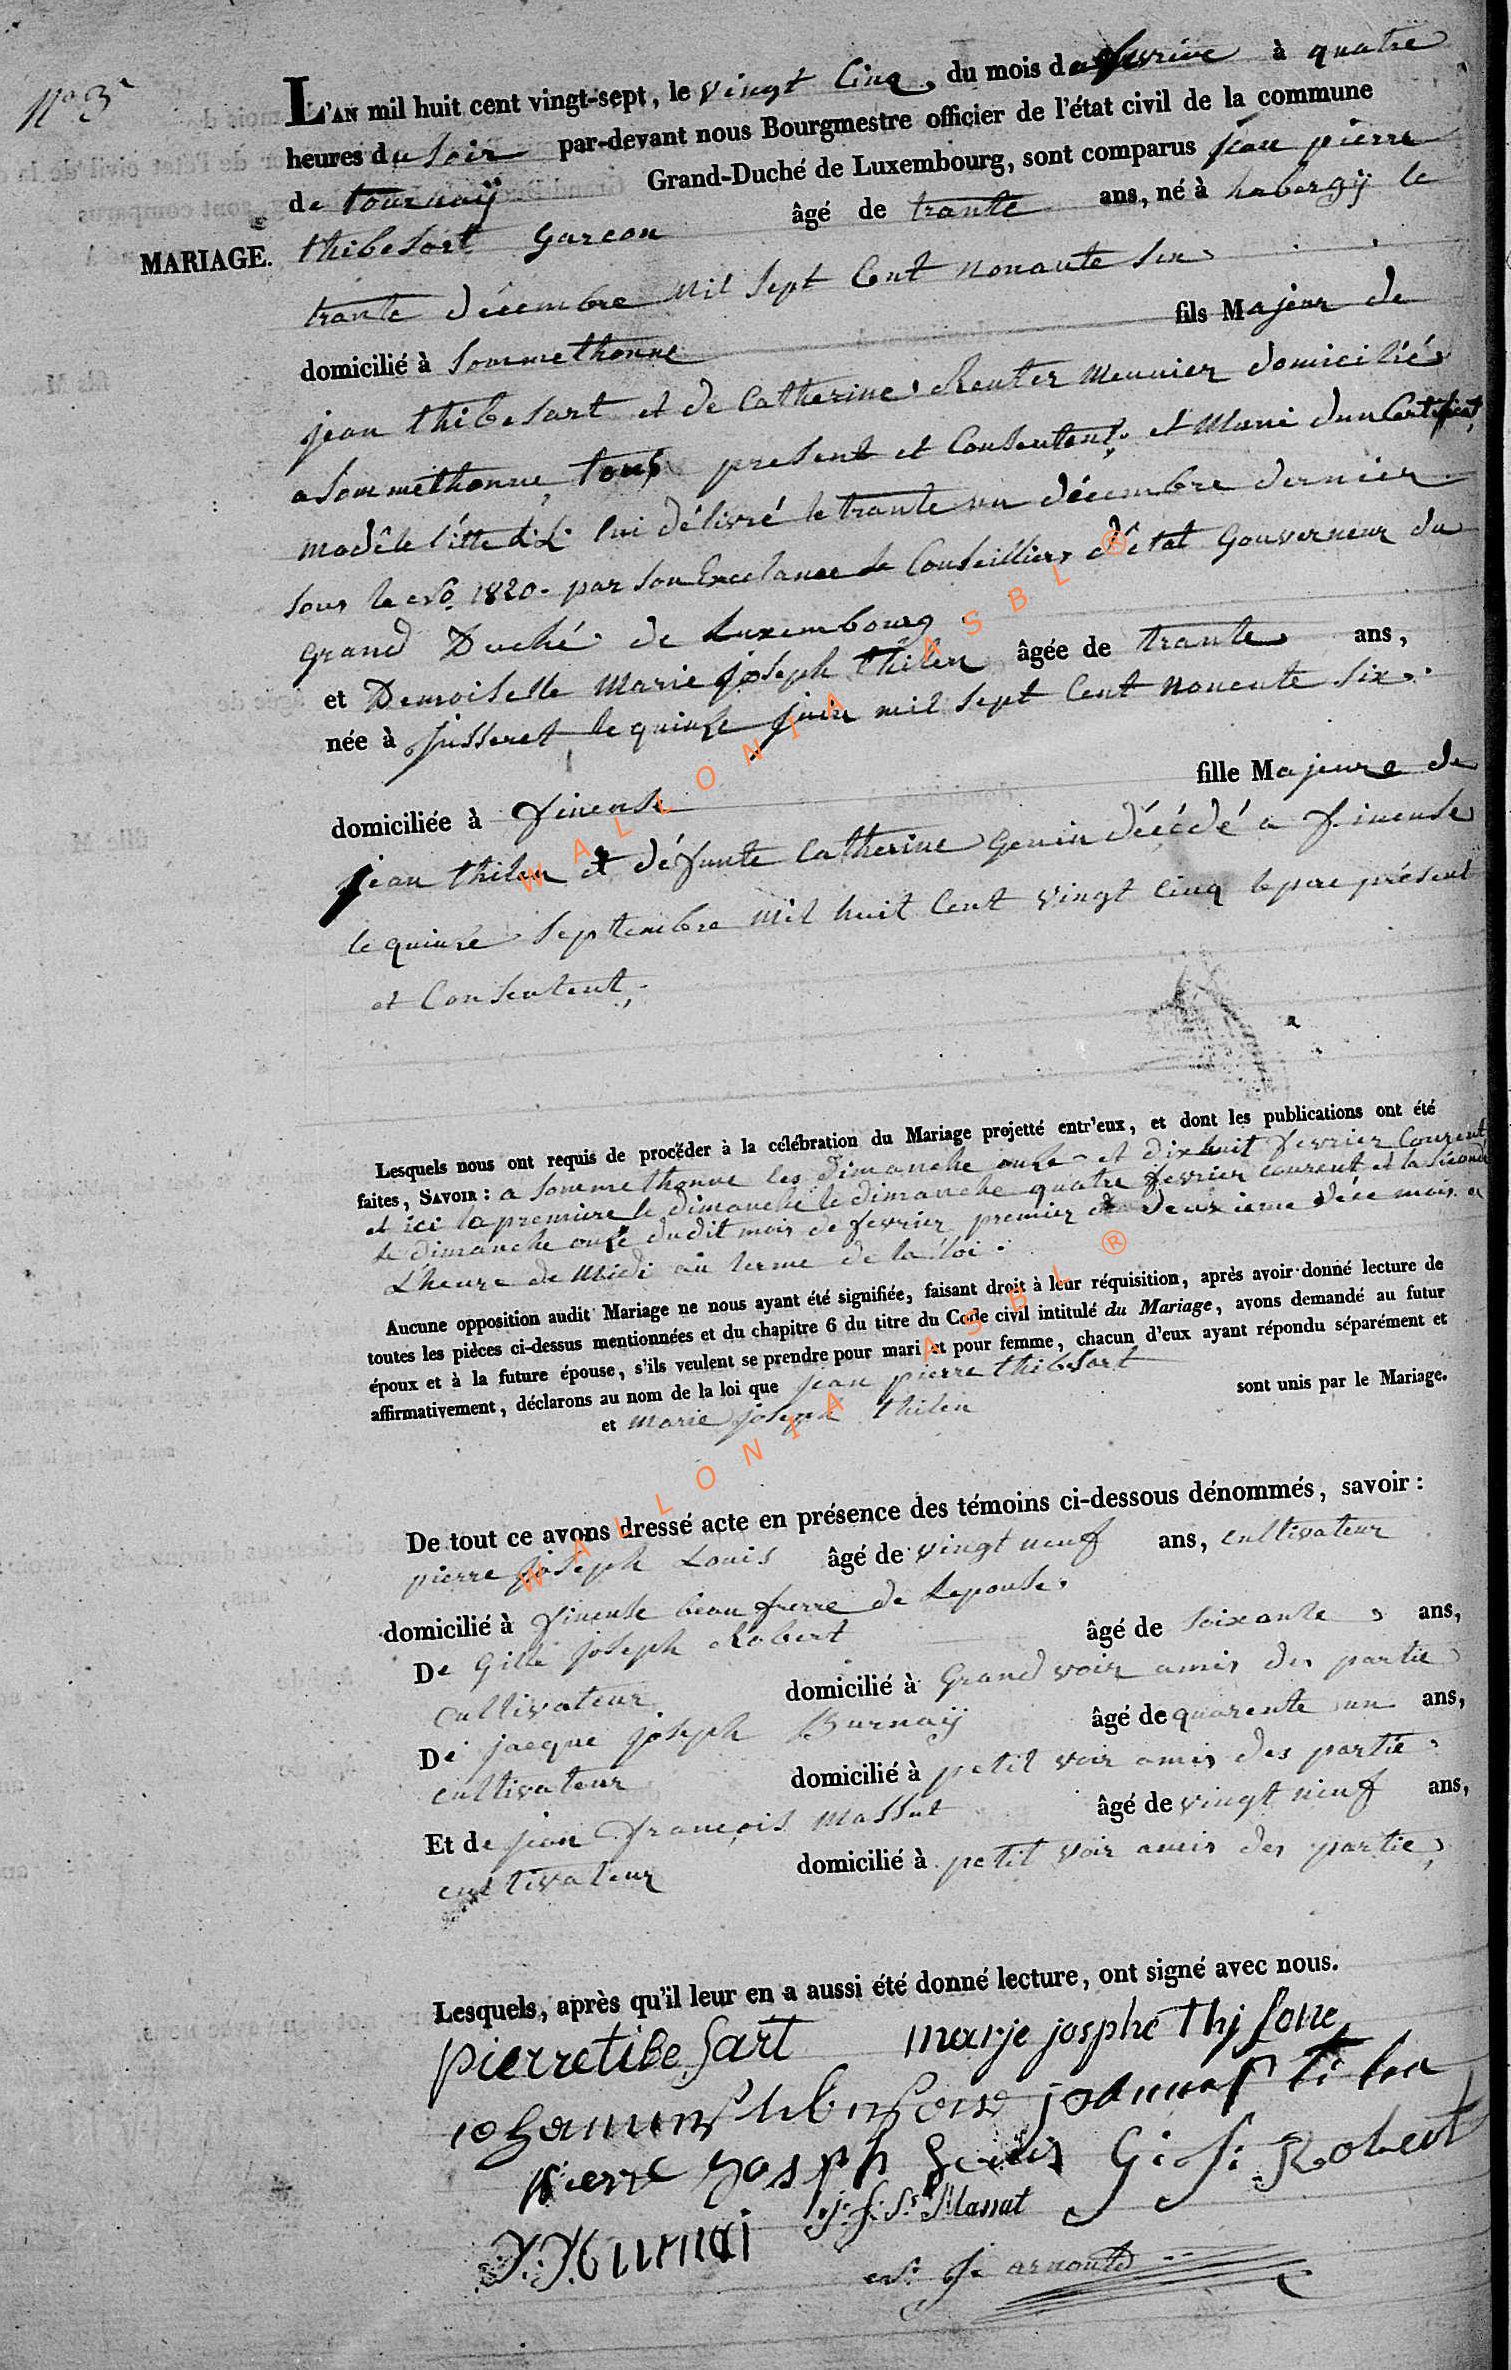 N° 3
L'AN mil huit cent vingt-sept, le vingt Cinq, du mois de fevrier à quatre
heures du Soir par-devant nous Bourgmestre officier de l'état civil de la commune
de tournaÿ Grand-Duché de Luxembourg, sont comparus jean pierre
MARIAGE. thibesart Garcon âgé de trante ans, né à habergÿ le
trante décembre mil Sept Cent nonante Six
domicilié à Sommethonne fils Majeur de
jean thibesart et de Catherine Reuter meunier domicilié
a Sommethonne tous present et Consentent et Muni dun Certificat
modêle lette L.L. lui délivré le trante un décembre dernier
Sous le n° 1820. par Son Excelance le Conseillier d'état Gouverneur du
grand Duché de Luxembourg
et Demoiselle Marie joseph thilen âgée de trante ans,
née à jusseret le quinse juin mil Sept Cent nonente Six.
domiciliée à fineuse fille Majeure de
jean thilen et défunte Catherine Genin décédé a fineuse
le quinse Septembre mil huit Cent vingt Cinq le pere présent
et Consentent,
Lesquels nous ont requis de procéder à la célébration du Mariage projetté entr'eux, et dont les publications ont été
faites, SAVOIR : a Sommethonne les dimanche onse et dix huit fevrier Courent
et ici la premiere le dimanche le dimanche quatre fevrier courent et la Second
le dimanche onse dudit mois de fevrier premier et deuxieme dice mois a
L'heure de Midi au terme de la loi.
Aucune opposition audit Mariage ne nous ayant été signifiée, faisant droit à leur réquisition, après avoir donné lecture de
toutes les pièces ci-dessus mentionnées et du chapitre 6 du titre du Code civil intitulé du Mariage, avons demandé au futur
époux et à la future épouse, s'ils veulent se prendre pour mari et pour femme, chacun d'eux ayant répondu séparément et
affirmativement, déclarons au nom de la loi que jean pierre thibesart
et marie joseph thilen sont unis par le Mariage.
De tout ce avons dressé acte en présence des témoins ci-dessous dénommés, savoir :
pierre joseph Louis âgé de vingt neuf ans, cultivateur
domicilié à fineuse beau frerre de Lepouse.
De Gille joseph Robert âgé de Soixante ans,
cultivateur domicilié à Grand voir amis des partie
De jacque joseph Burnaÿ âgé de quarente un ans,
cultivateur domicilié à petit voir amis des partie
Et de jean françois massut âgé de vingt neuf ans,
cultivateur domicilié à petit voir amis des partie
Lesquels, après qu'il leur en a aussi été donné lecture, ont signé avec nous.
pierre tibesart marje josphe
pierre joseph G: J: Robert
J: f: Massut
arnould
WALLONIA ASBL ®
WALLONIA ASBL ®